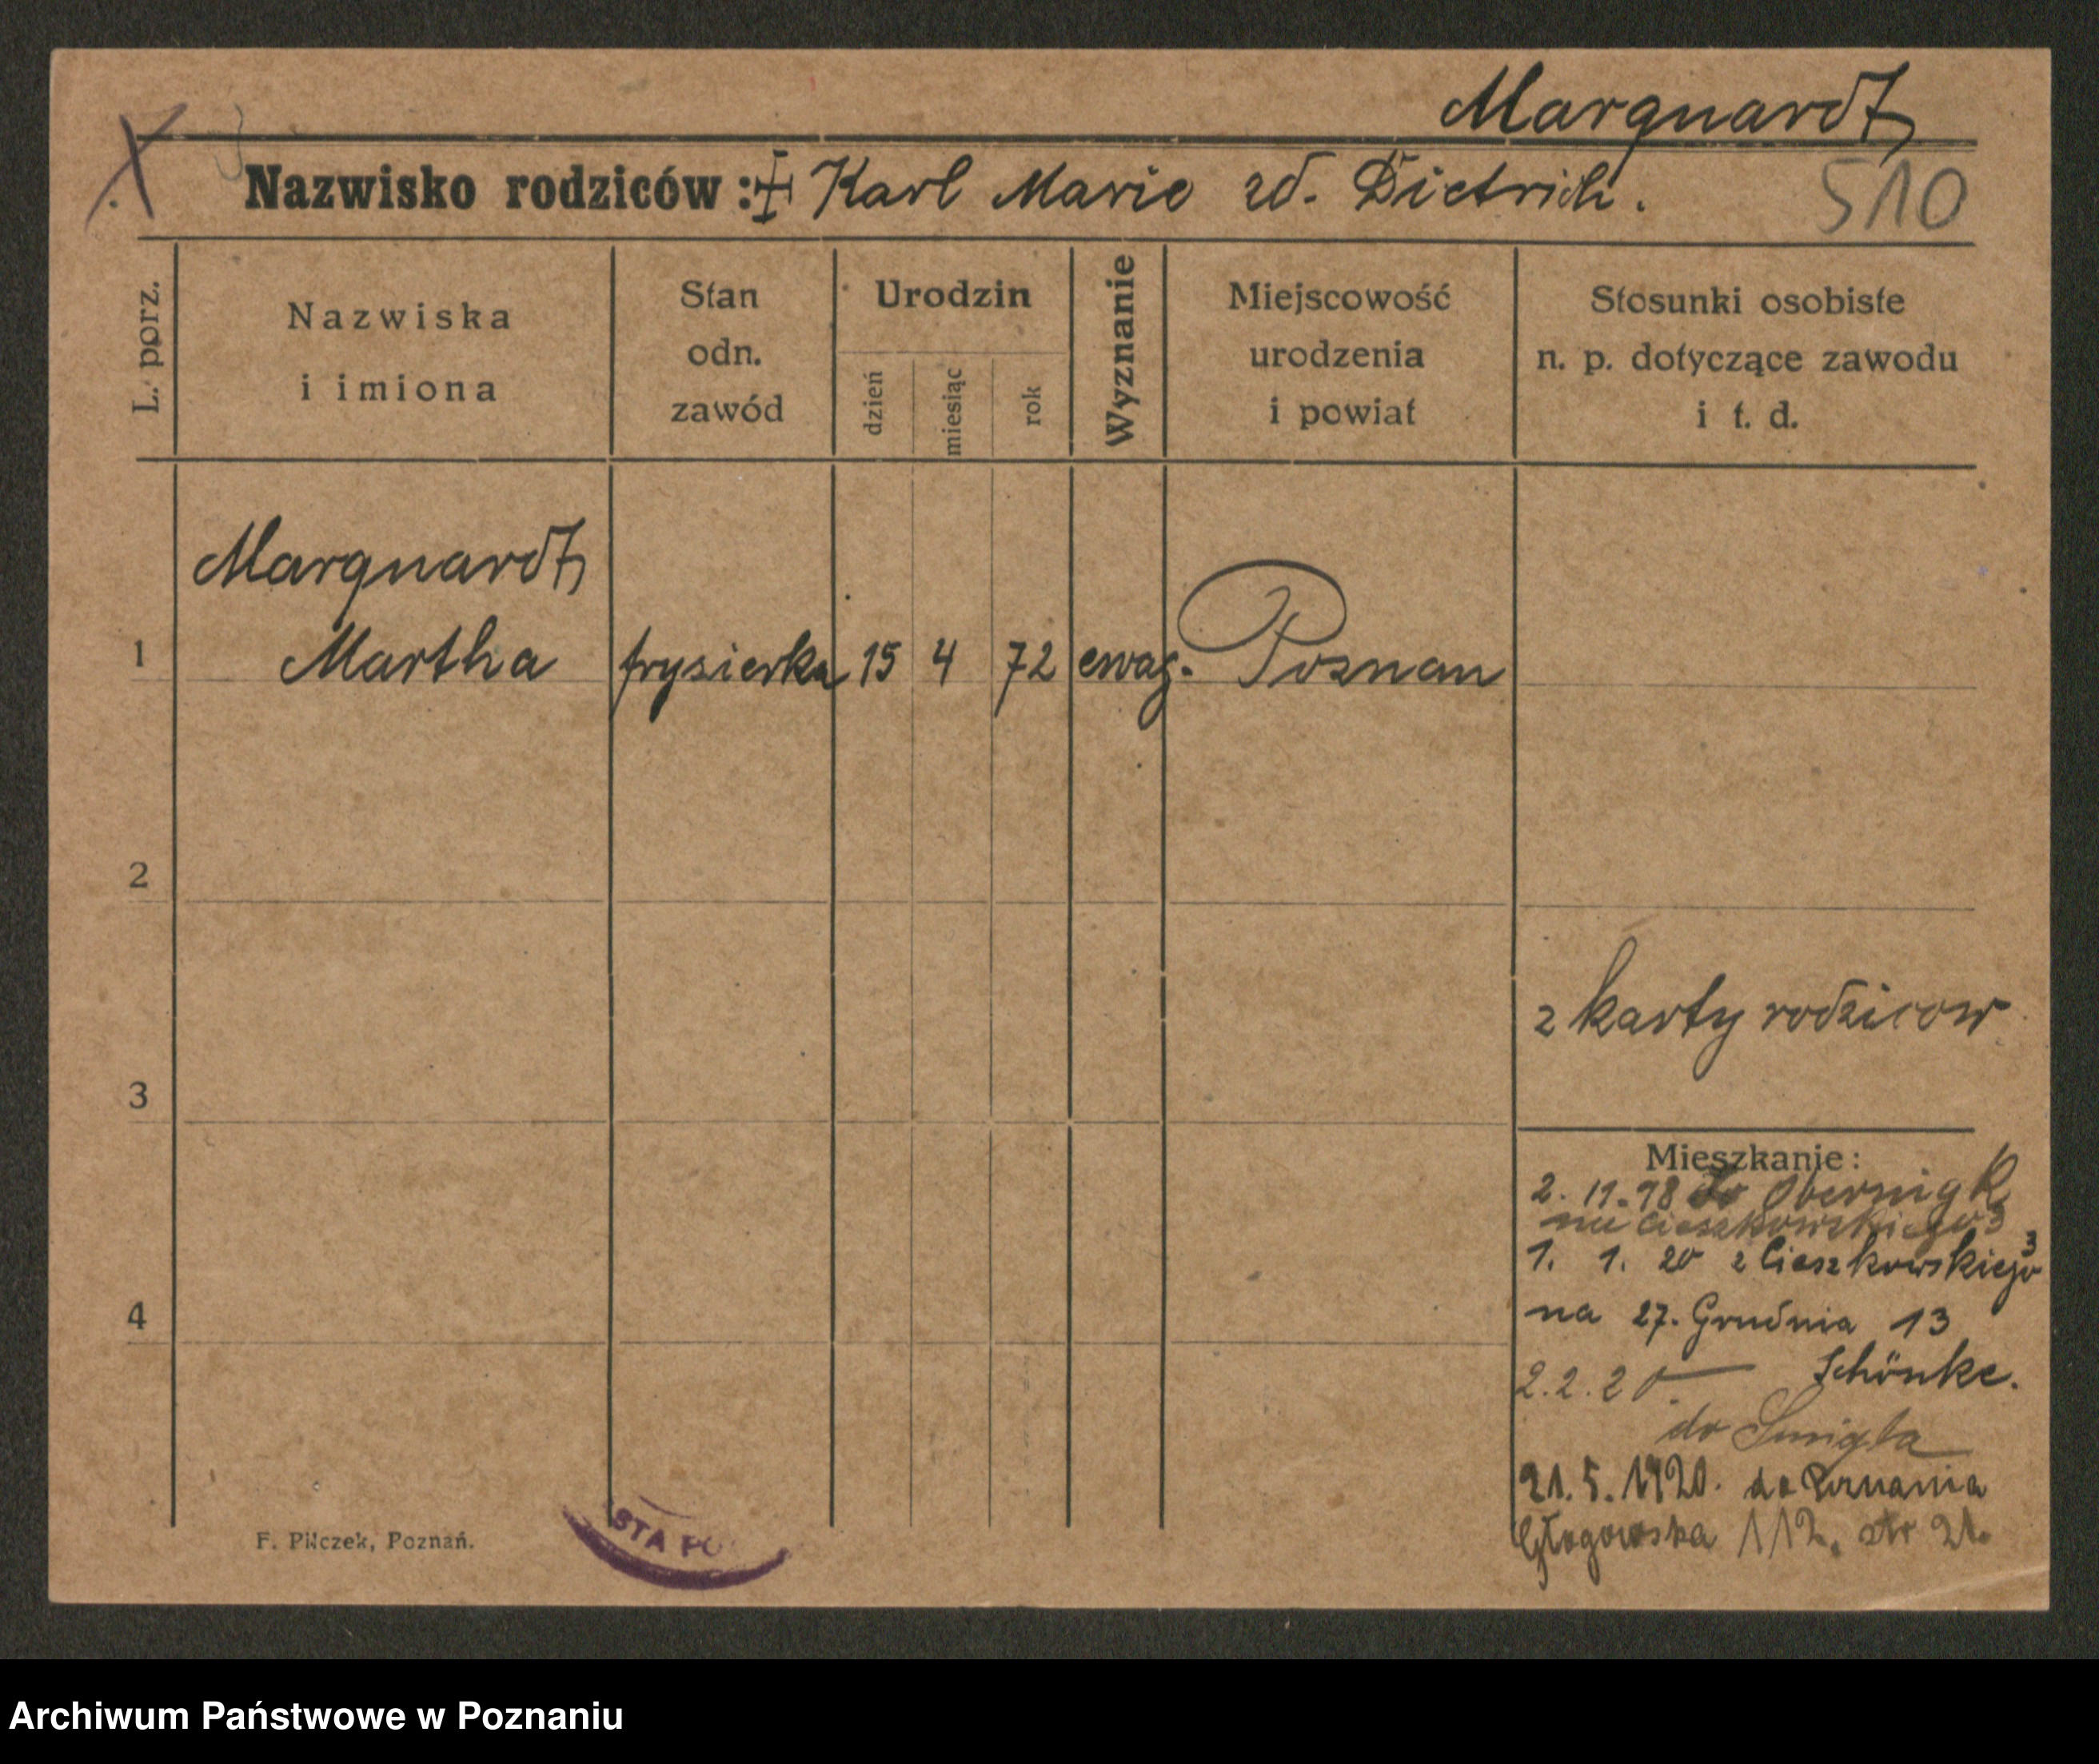 Marquardt
Nazwisko rodziców: Karl Marie zd. Dietrich.
510
L. porz.
Nazwiska
i imiona
Stan
odn.
zawód
Urodzin
dzień
miesiąc
rok
Wyznanie
Miejscowość
urodzenia
i powiat
Stosunki osobiste
n. p. dotyczące zawodu
i t. d.
Marquardt
1 Martha frysierka 15 4 72 ewag. Poznan
2
z karty rodzicow
3
Mieszkanie:
2. 11. 98 do Obernigk
Cieszkowskiego 3
1. 1. 20 z Cieszkowskiego 3
na 27. Grudnia 13
4
Schönke.
2.2.20
do Smigla
21. 5. 1920. do Poznania
Głogowska 112, str 21.
F. Pilczek, Poznań.
STA PO
Archiwum Państwowe w Poznaniu